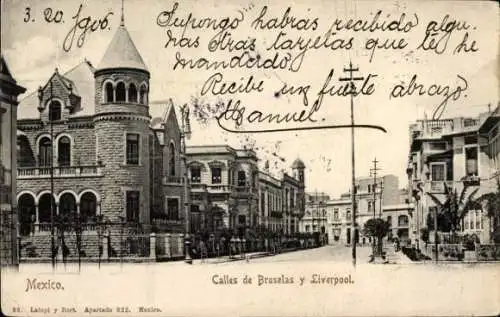 3. 20 Agfo 06
Supongo habrás recibido algu-
nas otras tarjetas que te he
mandado.
Recibe un fuerte abrazo
Manuel
Mexico.
Calles de Bruselas y Liverpool.
Latapi y Bert. Apartado 922. Mexico.